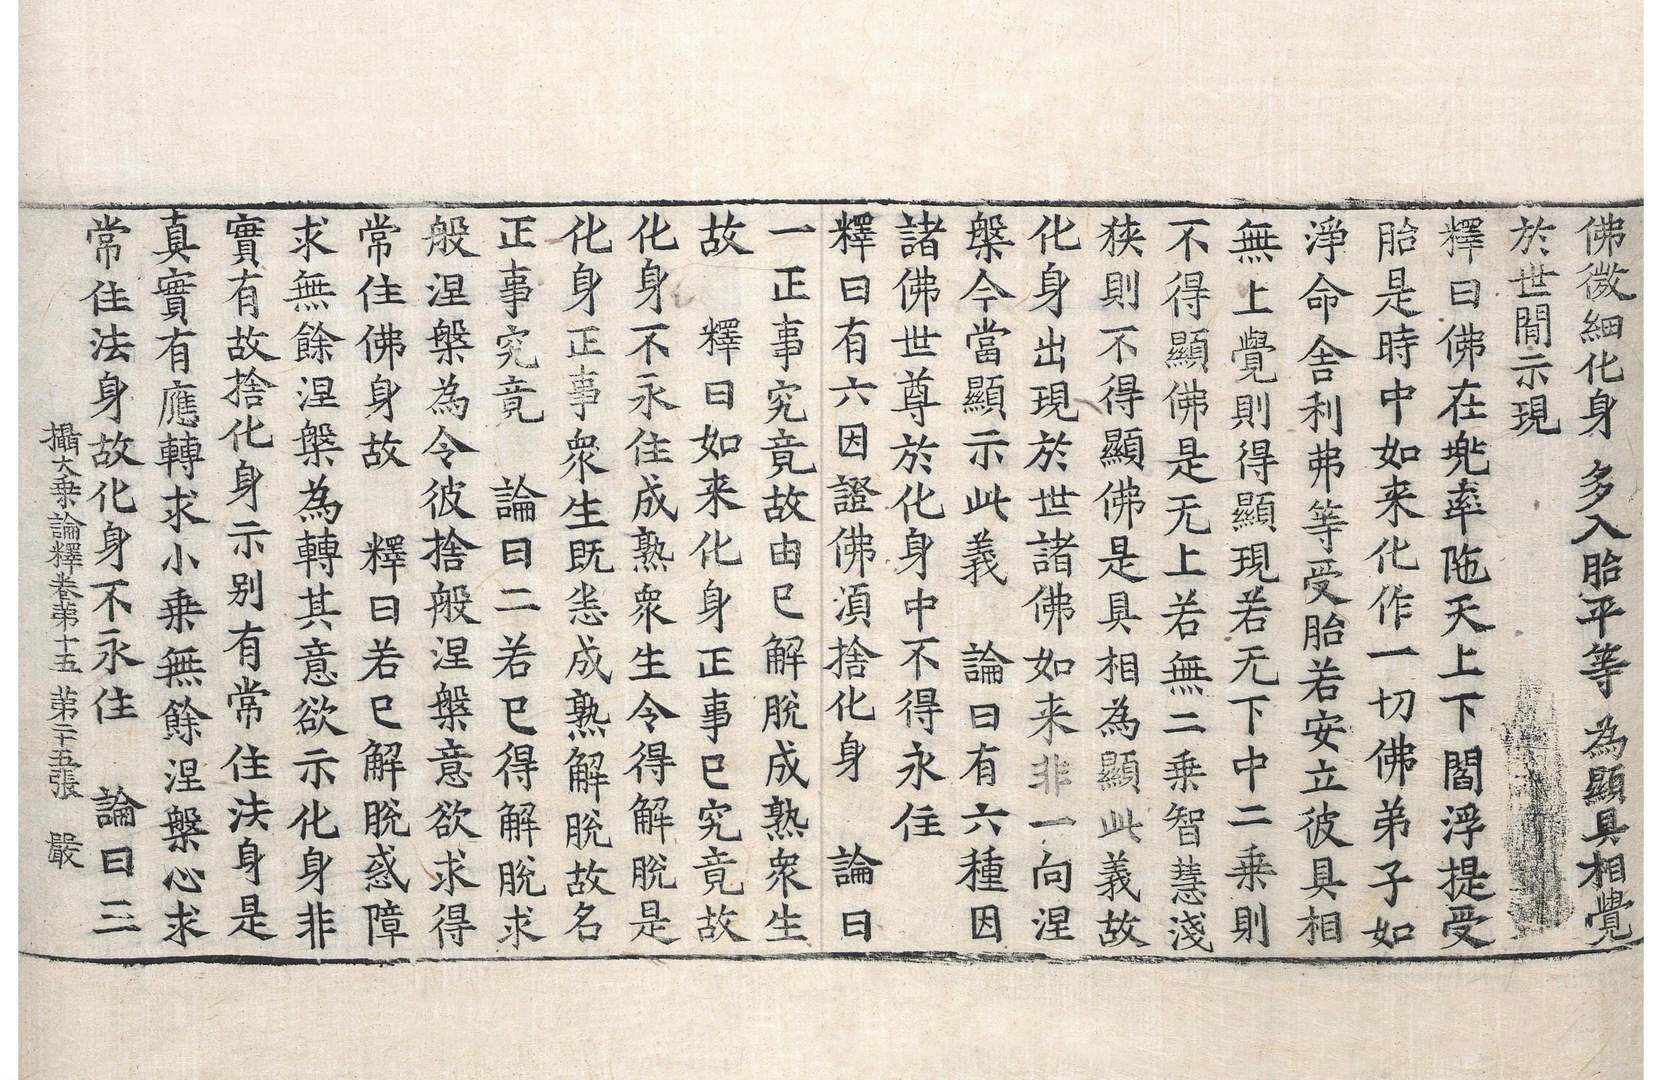 佛微細化身　多入胎平等　為顯具相覺
於世閒示現
釋曰佛在兠率陁天上下閻浮提受
胎是時中如来化作一切佛弟子如
淨命舎利弗等受胎若安立彼具相
無上覺則得顯現若无下中二乗則
不得顯佛是无上若無二乗智慧淺
狹則不得顯佛是具相為顯此義故
化身出現於世諸佛如来非一向涅
槃今當顯示此義　論曰有六種因
諸佛世尊於化身中不得永住
釋曰有六因證佛湏捨化身　論曰
一正事究竟故由已解脫成熟衆生
故　釋曰如来化身正事已究竟故
化身不永住成熟衆生令得解脫是
化身正事衆生既悉成熟解脫故名
正事究竟　論曰二若已得解脫求
般涅槃為令彼捨般涅槃意欲求得
常住佛身故　釋曰若已解脫惑障
求無餘涅槃為轉其意欲示化身非
實有故捨化身示别有常住法身是
真實有應轉求小乗無餘涅槃心求
常住法身故化身不永住　論曰三
攝大乗論釋卷苐十五　苐二十五張　嚴